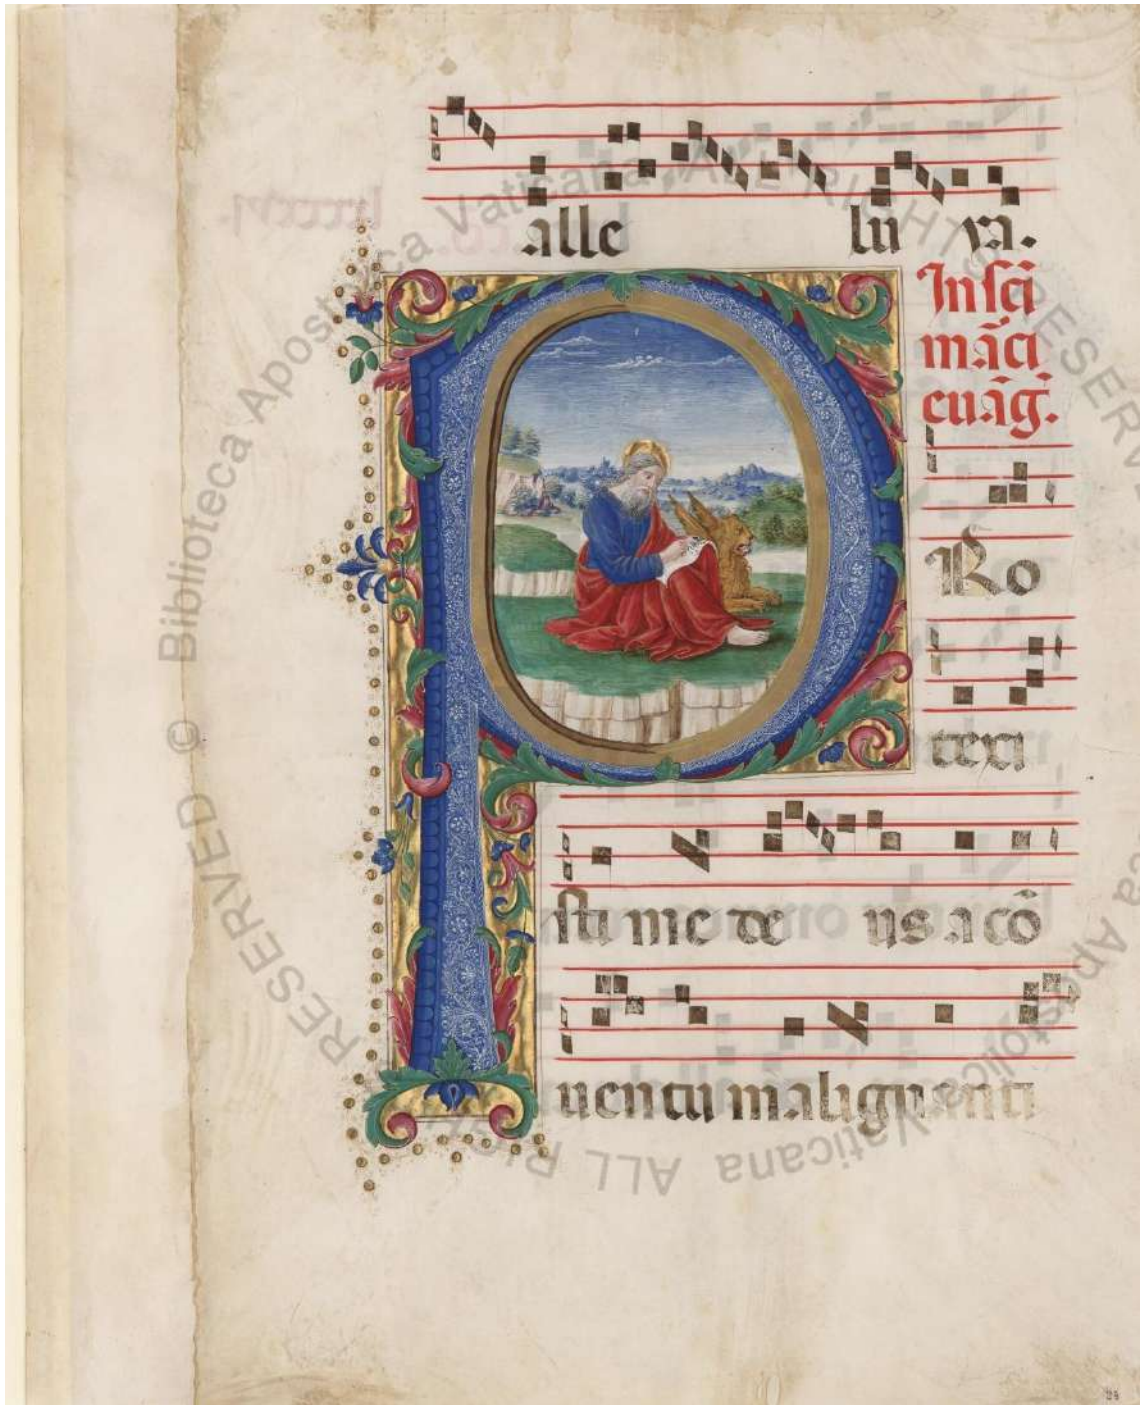 alle lu ya.
In sc̄i
māci
euāḡ.
PRo
texi
sti me de us a cō
uentu malignanti
© Biblioteca Apostolica Vaticana ALL RIGHTS RESERVED